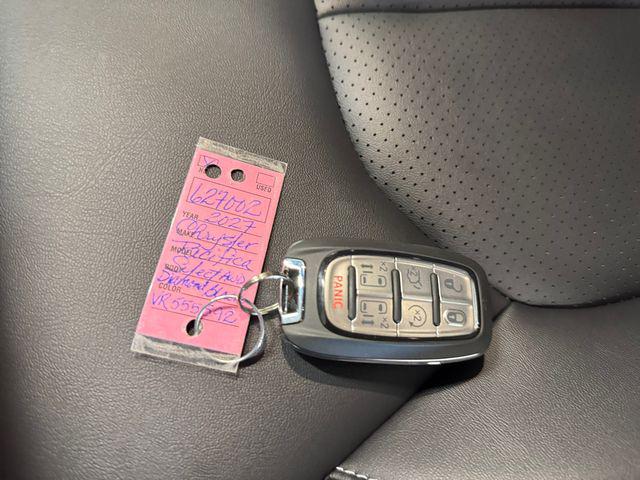 N
USED
627002
YEAR 2027
MAKE Chrysler
MODEL Pacifica
BODY Select AWD
COLOR Diamond
PANIC
×2
×2
×2